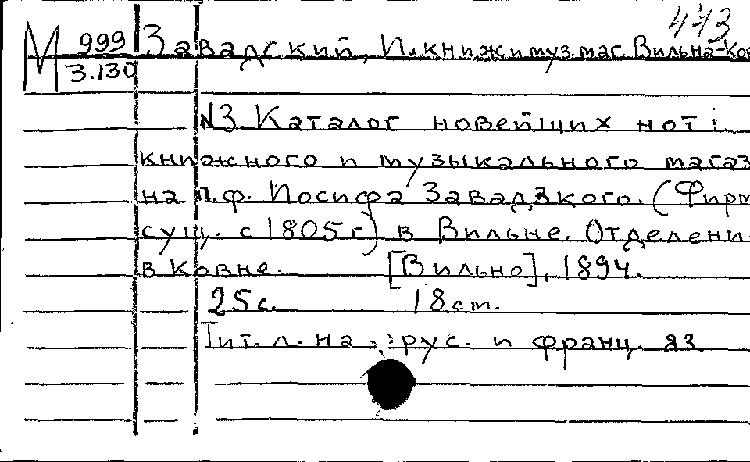 443
М 999 Завадский, И. книж и муз маг. Вильна-Ков
3.130
№3 Каталог новейших нот
книжного и музыкального магаз
на п.ф. Иосифа Завадзкого. (Фирм
сущ. с 1805 г) в Вильне. Отделени
в Ковне. [Вильно], 1894.
25с. 18 cm.
Тит. л. на рус. и франц. яз.